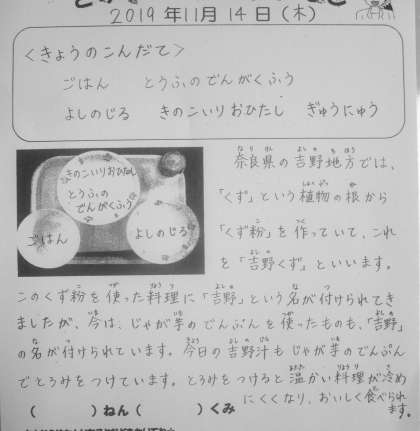 2019年11月14日(木)
<きょうのこんだて>
ごはん とうふのでんがくふう
よしのじる きのこいりおひたし ぎゅうにゅう
きのこいりおひたし
とうふの
でんがくふう
ごはん
よしのじる
奈良県の吉野地方では、
「くず」という植物の根から
「くず粉」を作っていて、これ
を「吉野くず」といいます。
このくず粉を使った料理に「吉野」という名が付けられてき
ましたが、今は、じゃが芋のでんぷんを使ったものも、「吉野」
の名が付けられています。今日の吉野汁もじゃが芋のでんぷん
でとろみをつけています。とろみをつけると温かい料理が冷め
にくくなり、おいしく食べられ
ます。
( )ねん( )くみ